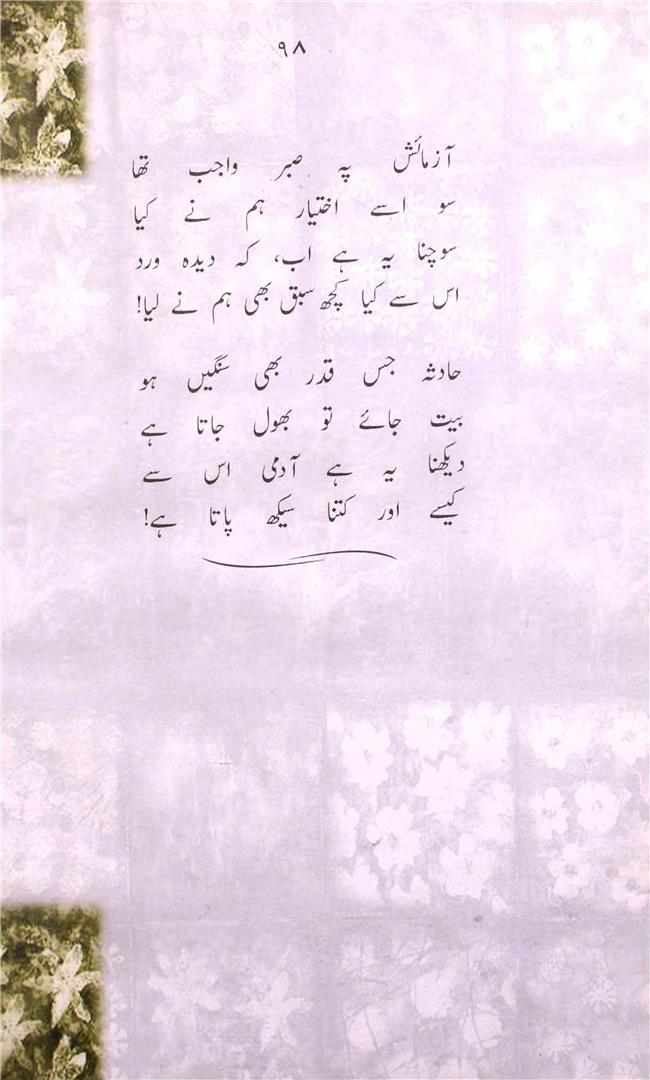 ۹۸
آزمائش پہ صبر واجب تھا
سو اسے اختیار ہم نے کیا
سوچنا یہ ہے اب، کہ دیدہ ورد
اس سے کیا کچھ سبق بھی ہم نے لیا!
حادثہ جس قدر بھی سنگیں ہو
بیت جائے تو بھول جاتا ہے
دیکھنا یہ ہے آدمی اس سے
کیسے اور کتنا سیکھ پاتا ہے!